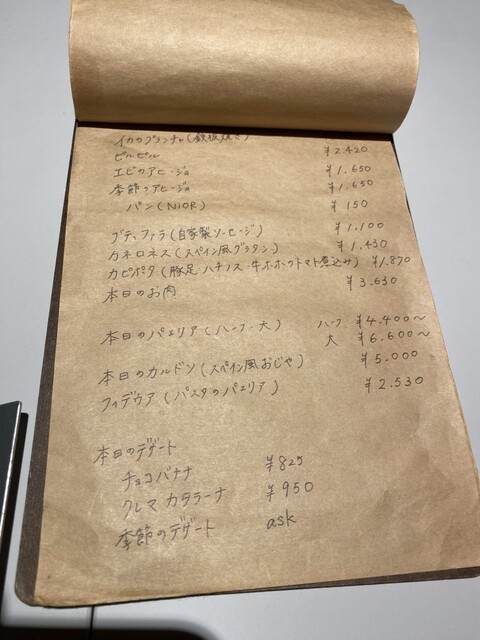 イカのプランチャ(鉄板焼き)
ピルピル ¥2.420
エビのアヒージョ ¥1.650
季節のアヒージョ ¥1.650
パン(NIOR) ¥150
ブティファラ(自家製ソーセージ) ¥1.100
カネロネス(スペイン風グラタン) ¥1.430
カピポタ(豚足・ハチノス・牛ホホのトマト煮込み) ¥1.870
本日のお肉 ¥3.630
本日のパエリア(ハーフ・大) ハーフ ¥4.400〜
大 ¥6.600〜
本日のカルドソ(スペイン風おじや) ¥5.000
フィデウア(パスタのパエリア) ¥2.530
本日のデザート
チョコバナナ ¥825
クレマカタラーナ ¥950
季節のデザート ask